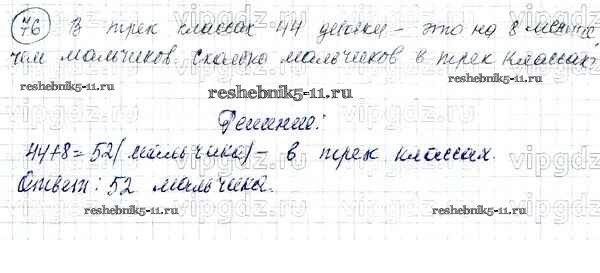 76 В трех классах 44 девочки - это на 8 меньше
чем мальчиков. Сколько мальчиков в трех классах?
reshebnik5-11.ru
reshebnik5-11.ru
Решение:
44+8=52 (мальчика) - в трех классах.
Ответ: 52 мальчика.
reshebnik5-11.ru
reshebnik5-11.ru
vipgdz
vipgdz.